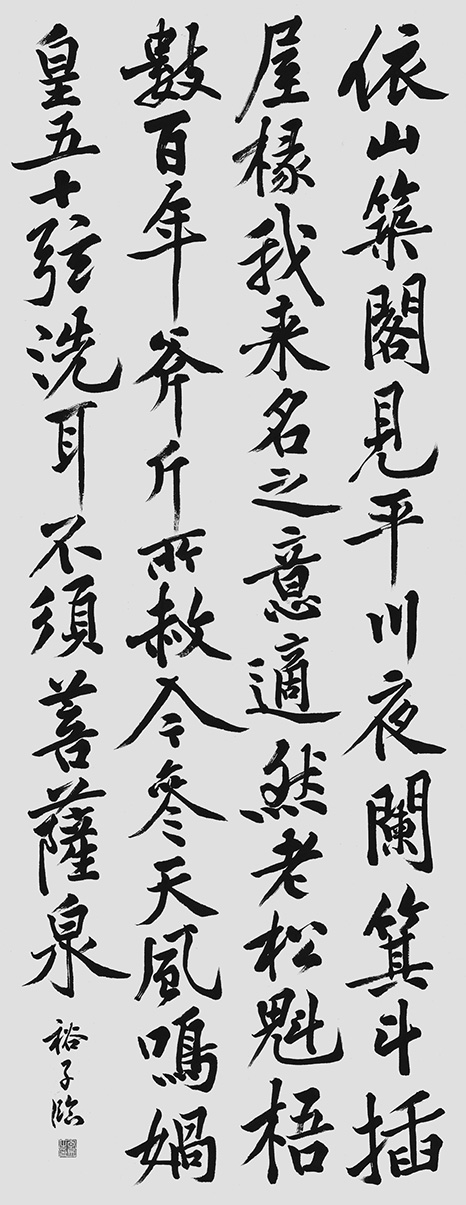 依山築閣見平川夜闌箕斗插
屋椽我来名之意適然老松魁梧
數百年斧斤所赦今參天風鳴媧
皇五十弦洗耳不須菩薩泉
裕子臨